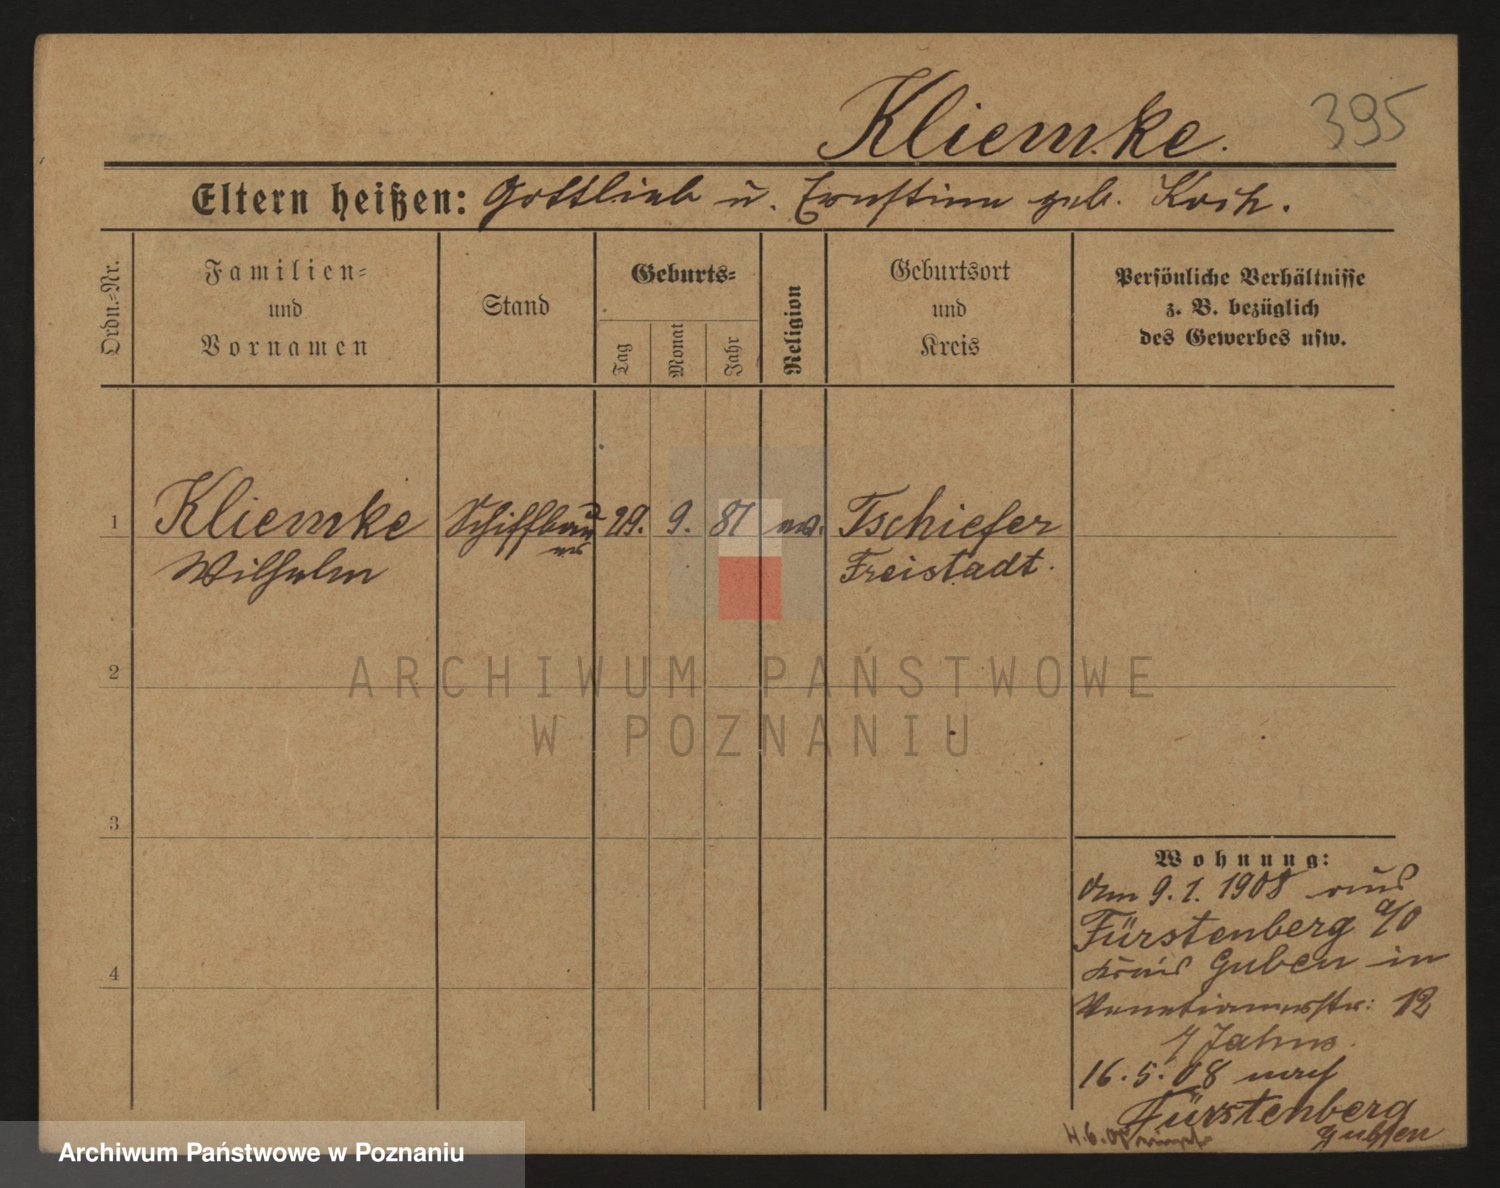 Kliemke.
395
Eltern heißen: Gottlieb u. Ernstine geb. Koch.
Ordn.=Nr.
Familien=
und
Vornamen
Stand
Geburts=
Tag
Monat
Jahr
Religion
Geburtsort
und
Kreis
Persönliche Verhältnisse
z. B. bezüglich
des Gewerbes usw.
1
Kliemke
Wilhelm
Schiffbau
er
29.
9.
87
ev.
Tschiefer
Freistadt.
2
3
4
ARCHIWUM PAŃSTWOWE
W POZNANIU
Wohnung:
Am 9.1.1908 aus
Fürstenberg a/O
Kreis Guben in
Venetianerstr: 12
16.5.08 nach
Fürstenberg
Guben
Archiwum Państwowe w Poznaniu